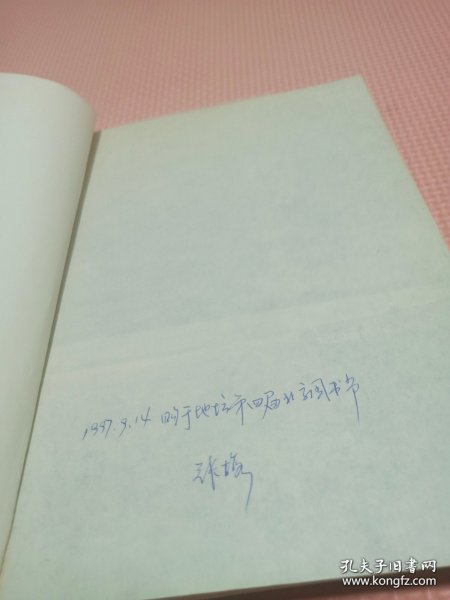 1997.9.14 购于地坛第四届北京图书节
孔夫子旧书网
www.kongfz.com